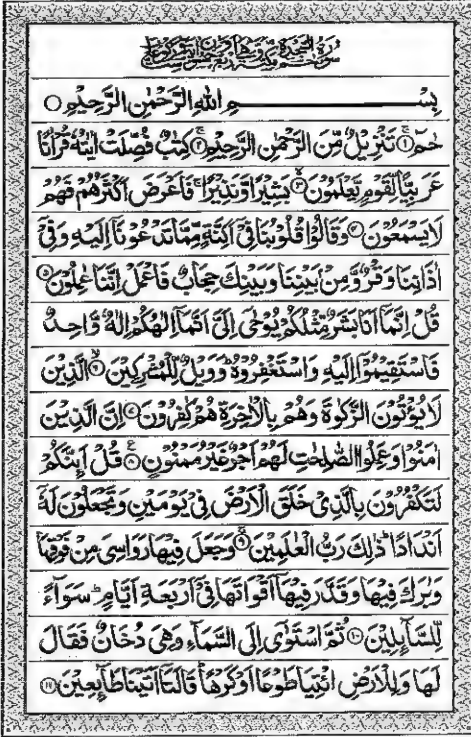 سُوْرَةُ السَّجْدَةِ مَكِّيَّةٌ
بِسْمِ اللهِ الرَّحْمٰنِ الرَّحِيْمِ ○
حٰمٓ ۚ﴿١﴾ تَنْزِيْلٌ مِّنَ الرَّحْمٰنِ الرَّحِيْمِ ۚ﴿٢﴾ كِتٰبٌ فُصِّلَتْ اٰيٰتُهٗ قُرْاٰنًا
عَرَبِيًّا لِّقَوْمٍ يَّعْلَمُوْنَ ۙ﴿٣﴾ بَشِيْرًا وَّنَذِيْرًا ۚ فَاَعْرَضَ اَكْثَرُهُمْ فَهُمْ
لَا يَسْمَعُوْنَ ﴿٤﴾ وَقَالُوْا قُلُوْبُنَا فِيْٓ اَكِنَّةٍ مِّمَّا تَدْعُوْنَآ اِلَيْهِ وَفِيْٓ
اٰذَانِنَا وَقْرٌ وَّمِنْۢ بَيْنِنَا وَبَيْنِكَ حِجَابٌ فَاعْمَلْ اِنَّنَا عٰمِلُوْنَ ﴿٥﴾
قُلْ اِنَّمَآ اَنَا بَشَرٌ مِّثْلُكُمْ يُوْحٰٓى اِلَيَّ اَنَّمَآ اِلٰهُكُمْ اِلٰهٌ وَّاحِدٌ
فَاسْتَقِيْمُوْٓا اِلَيْهِ وَاسْتَغْفِرُوْهُ ؕ وَوَيْلٌ لِّلْمُشْرِكِيْنَ ۙ﴿٦﴾ الَّذِيْنَ
لَا يُؤْتُوْنَ الزَّكٰوةَ وَهُمْ بِالْاٰخِرَةِ هُمْ كٰفِرُوْنَ ﴿٧﴾ اِنَّ الَّذِيْنَ
اٰمَنُوْا وَعَمِلُوا الصّٰلِحٰتِ لَهُمْ اَجْرٌ غَيْرُ مَمْنُوْنٍ ﴿٨﴾ قُلْ اَئِنَّكُمْ
لَتَكْفُرُوْنَ بِالَّذِيْ خَلَقَ الْاَرْضَ فِيْ يَوْمَيْنِ وَتَجْعَلُوْنَ لَهٗٓ
اَنْدَادًا ؕ ذٰلِكَ رَبُّ الْعٰلَمِيْنَ ۚ﴿٩﴾ وَجَعَلَ فِيْهَا رَوَاسِيَ مِنْ فَوْقِهَا
وَبٰرَكَ فِيْهَا وَقَدَّرَ فِيْهَآ اَقْوَاتَهَا فِيْٓ اَرْبَعَةِ اَيَّامٍ ؕ سَوَآءً
لِّلسَّآئِلِيْنَ ﴿١٠﴾ ثُمَّ اسْتَوٰٓى اِلَى السَّمَآءِ وَهِيَ دُخَانٌ فَقَالَ
لَهَا وَلِلْاَرْضِ ائْتِيَا طَوْعًا اَوْ كَرْهًا ؕ قَالَتَآ اَتَيْنَا طَآئِعِيْنَ ﴿١١﴾